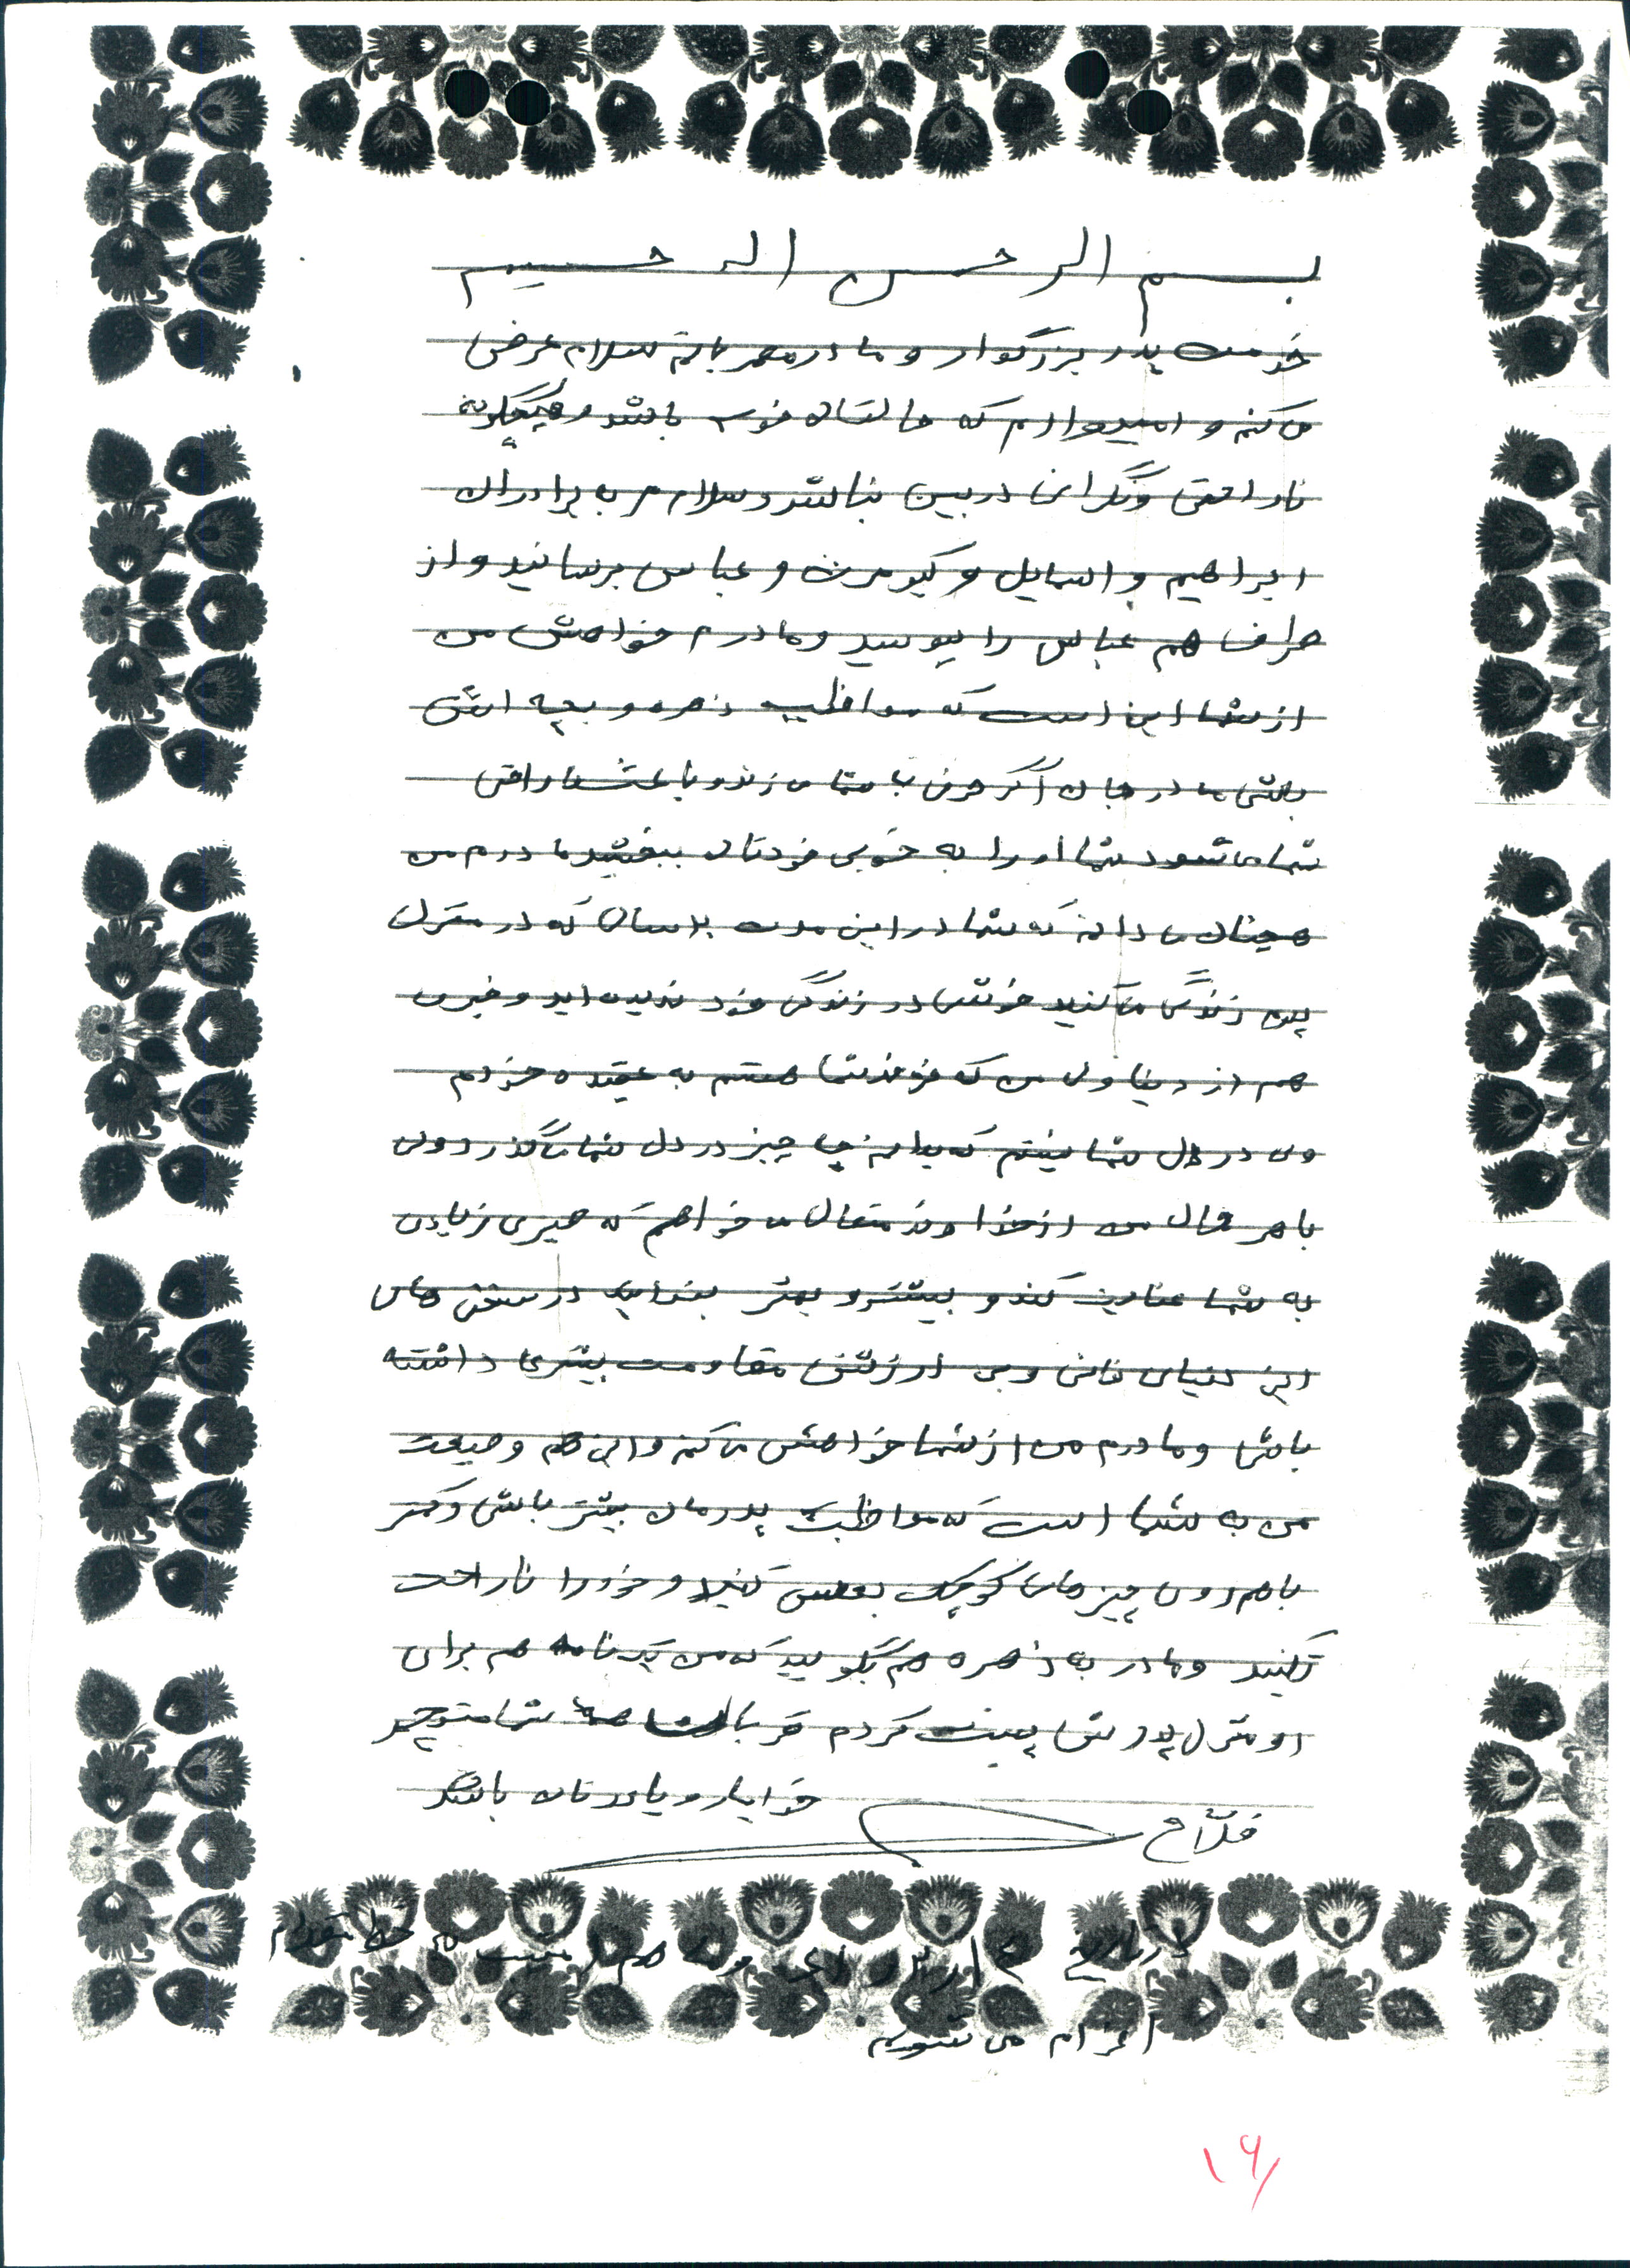 بسم الرحمن الرحیم
خدمت پدر بزرگوار و مادر مهربانم سلام عرض
می کنم و امیدوارم که حالتان خوب باشد و هیچگونه
ناراحتی و نگرانی در بین نباشد و سلام مرا به برادران
ابراهیم و اسمایل و کیومرث و عباس برسانید و از
طرف هم عباس را ببوسید و مادرم خواهش من
از شما این است که مواظب زهره و بچه اش
باشی مادر جان اگر حرفی با شما می زند و باعث ناراحتی
شما می شود شما او را به خوبی خودتان ببخشید مادرم من
همچنان می دانم که شما در این مدت سال که در منزل
پدر زندگی می کنید خوشی در زندگی خود ندیده اید و خیری
هم از دنیا ولی من که فرزند شما هستم به عقیده خودم
ولی در دل شما نیستم که بدانم چه چیز در دل شما می گذرد ولی
با هر حال من از خداوند متعال می خواهم که صبری زیادی
به شما عنایت کند و بیشتر و بهتر بتوانید در سختی های
این دنیای فانی و بی ارزش مقاومت بیشتری داشته
باشی و مادرم من از شما خواهش می کنم و این هم وصیت
من به شما است که مواظب پدرمان بیشتر باشی و کمتر
با هم روی چیزهای کوچک بحث کنید و خود را ناراحت
نکنید و مادر به زهره هم بگویید که من یک نامه هم برای
او منزل پدرش پست کردم قربان شما منوچهر
خدا یار و یاورتان باشد
فلاح
در تاریخ و ما هم امشب به خط مقدم
اعزام می شویم
۱۶/